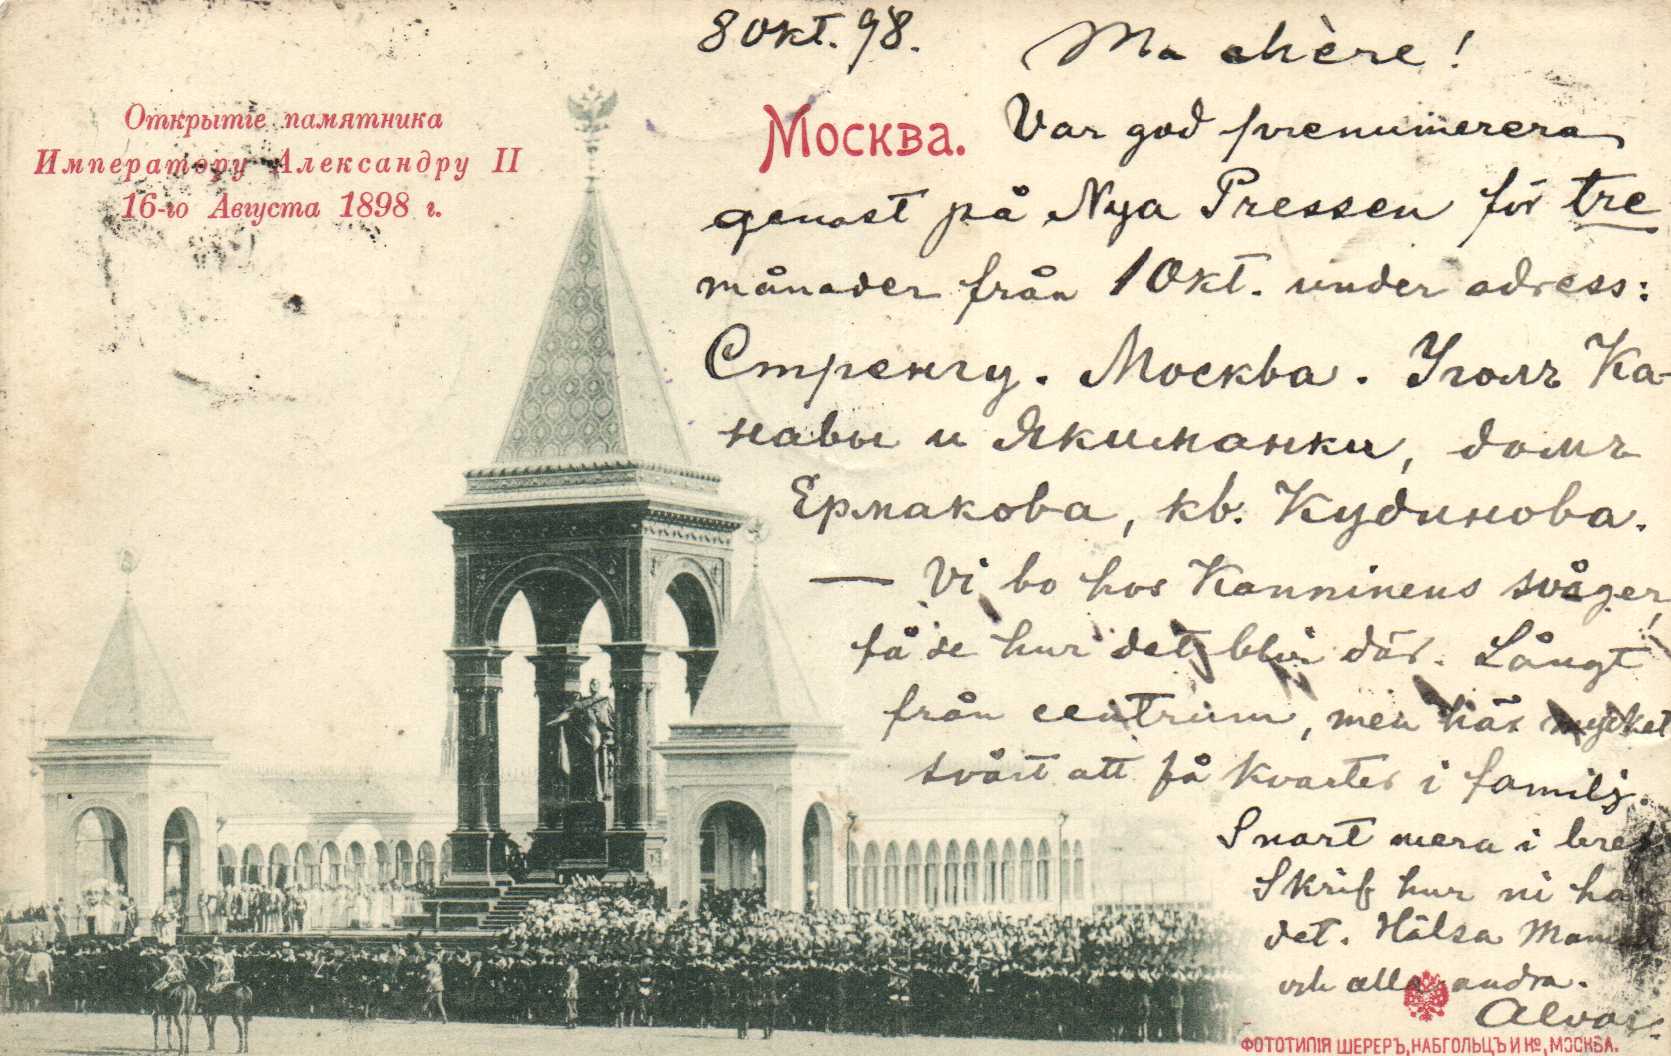 8 Okt. 98.
Ma chère!
Открытіе памятника
Императору Александру II
16-го Августа 1898 г.
Москва.
Var god prenumerera
genast på Nya Pressen för tre
månader från 1 Okt. under adress:
Стренгу. Москва. Уголъ Ка-
навы и Якиманки, домъ
Ермакова, кв. Кудинова.
— Vi bo hos Kanninens svåger,
få se hur det blir där. Långt
från centrum, men här mycket
svårt att få kvarter i familj.
Snart mera i bref.
Skrif hur ni ha
det. Hälsa Mamma
och alla andra.
Alvar.
ФОТОТИПІЯ ШЕРЕРЪ, НАБГОЛЬЦЪ И Ко, МОСКВА.